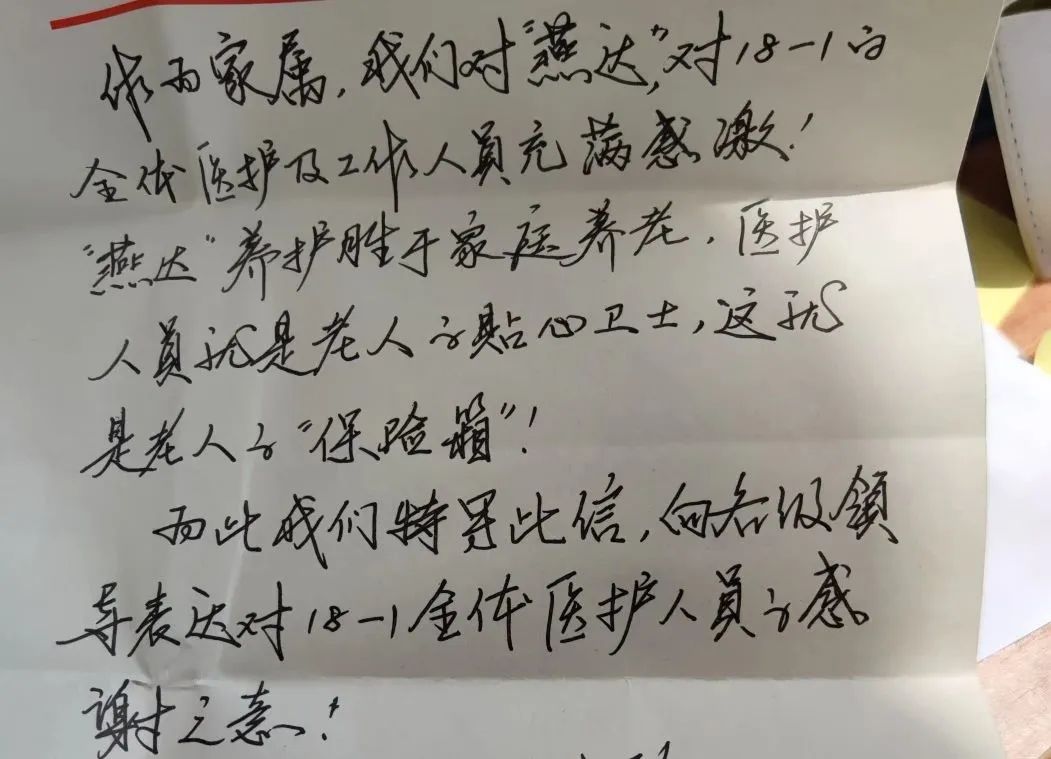 作为家属，我们对“燕达”，对18-1的
全体医护及工作人员充满感激！
“燕达”养护胜于家庭养老，医护
人员就是老人的贴心卫士，这就
是老人的“保险箱”！
为此我们特写此信，向各级领
导表达对18-1全体医护人员的感
谢之意！